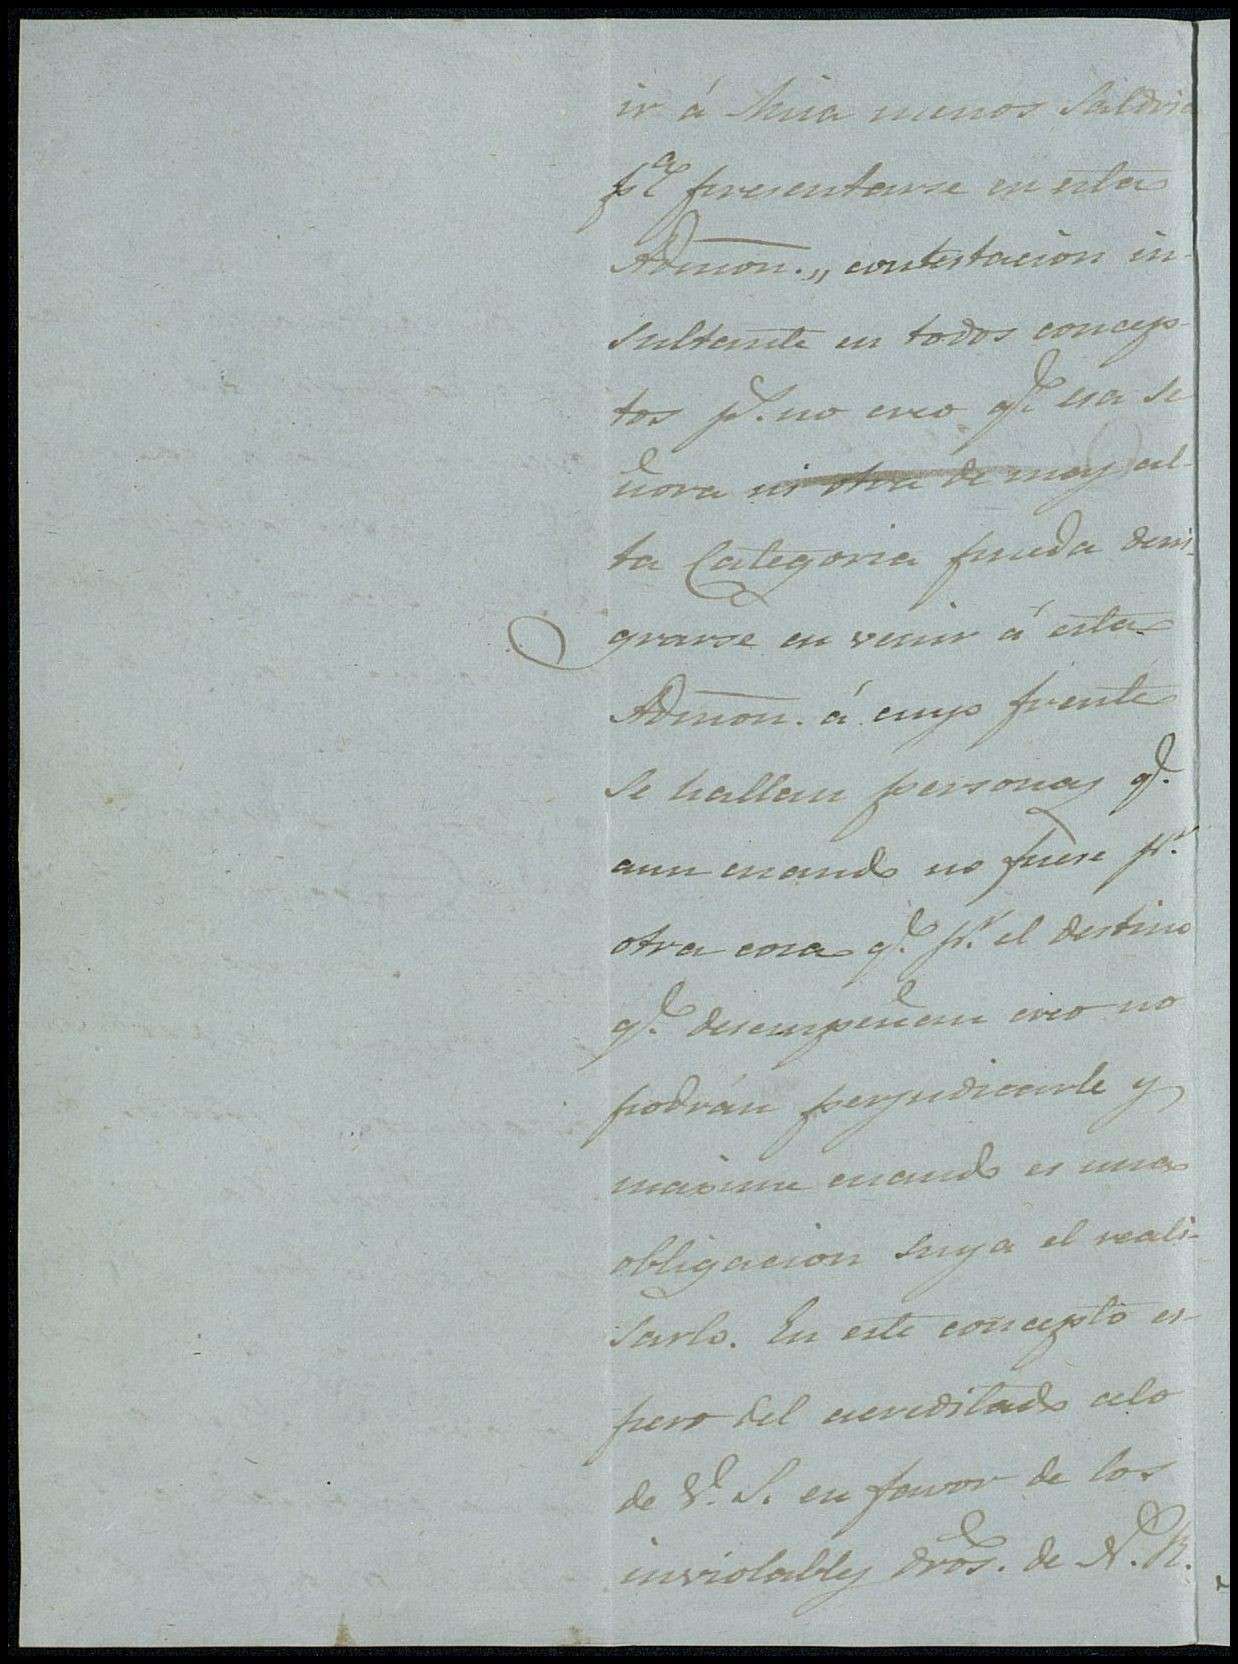 ir á Misa menos saldria
pª presentarse en esta
Admon.,, contestacion in-
sultante en todos concep-
tos p.s no creo q.e esa Se
ñora ni otra de mas al-
ta Categoria pueda deni-
grarse en venir á esta
Admon. á cuyo frente
se hallan personas q.e
aun cuando no fuese p.r
otra cosa q.e p.r el destino
q.e desempeñan creo no
podrán perjudicarle y
maxime cuando es una
obligacion suya el reali-
sarlo. En este concepto es-
pero del acreditado celo
de V. S. en favor de los
inviolables dros. de N. R.